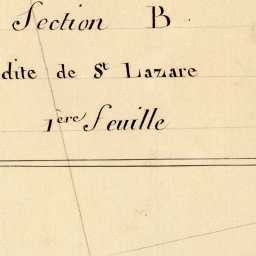 Section B
dite de St Lazare
1ère feuille